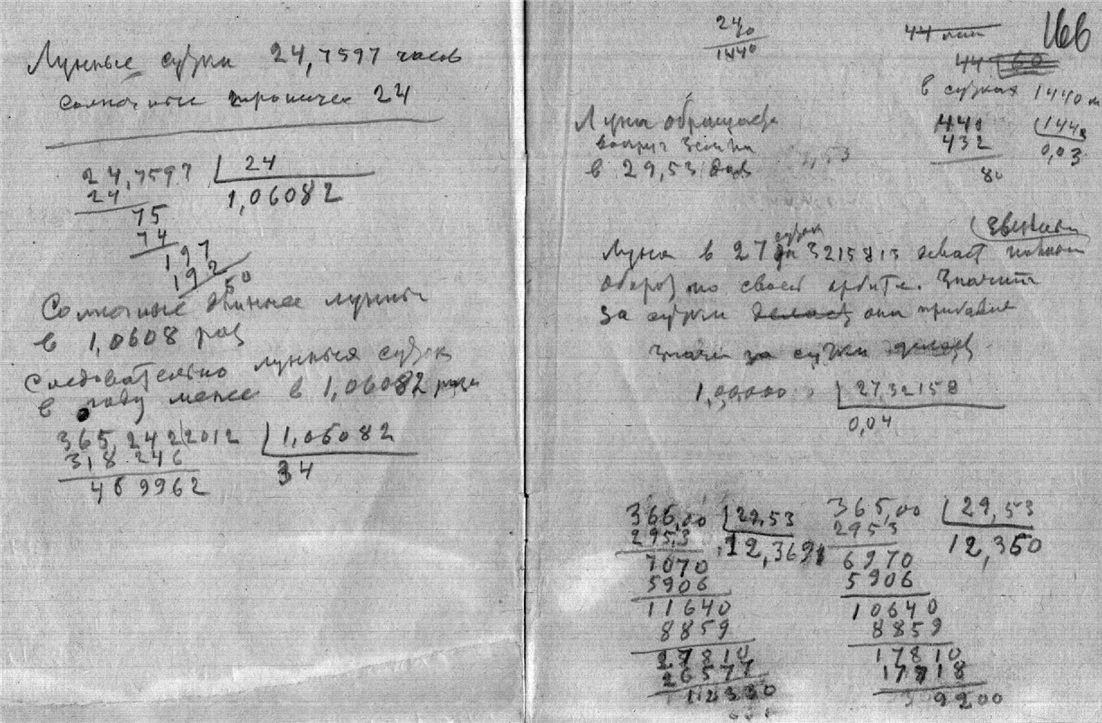 Лунные сутки 24,7597 часов
солнечные тропичес 24
24,7597 24
24 1,06082
75
74
197
192
50
Солнечные длиннее лунных
в 1,0608 раз
Следовательно лунных суток
в году менее в 1,06082 раза
365,2422012 1,06082
318.246 34
469962
24
1440
44 мин
44 60
в сутках 1440 м
440 1440
432 0,03
80
166
Луна обращается
вокруг Земли
в 29,53 дня
Луна в 27 суток 3215813 делает полный
оборот по своей орбите. Значит
за сутки делает она прибавит
Значит за сутки
1,00000 27,32158
0,04
366,00 29,53
295,3 12,3691
7070
5906
11640
8859
27810
26577
12330
365,00 29,53
2953 12,360
6970
5906
10640
8859
17810
17718
9200